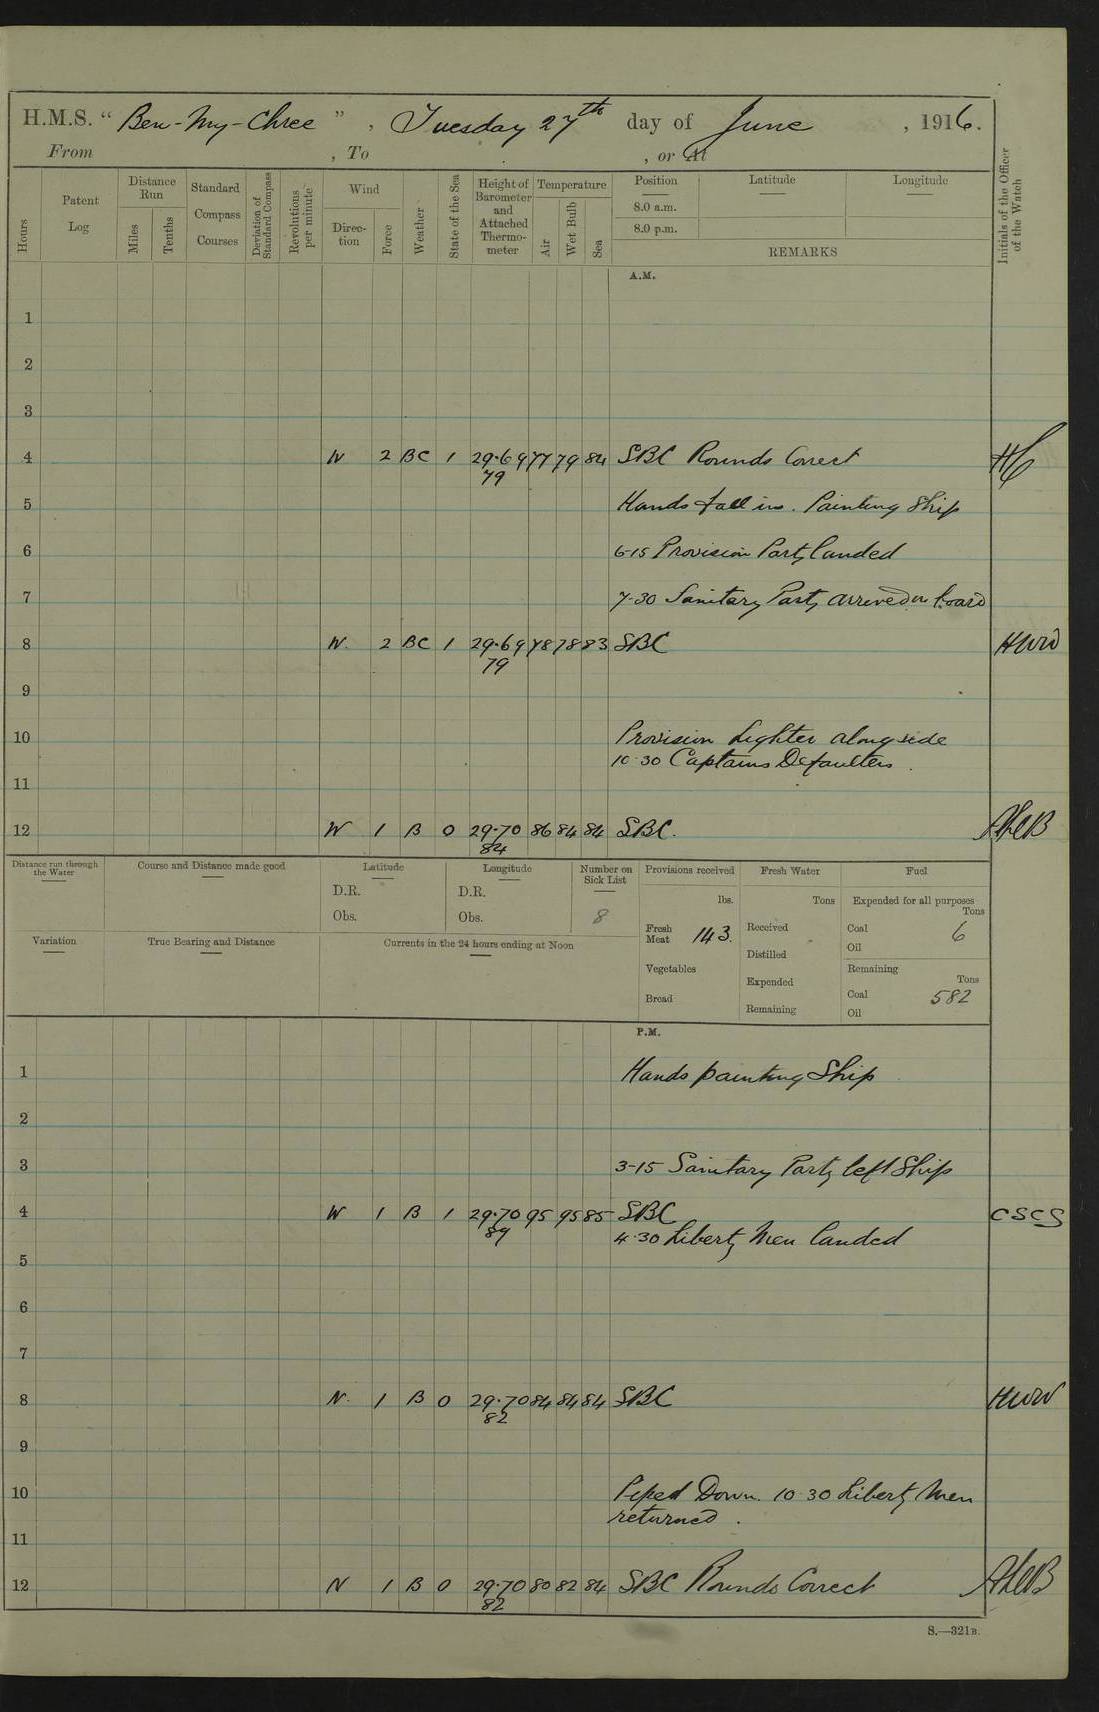 H.M.S. “ Ben-My-Chree ” , Tuesday 27th day of June , 1916.
From , To , or At
Hours
Patent Log
Distance Run
Miles
Tenths
Standard Compass Courses
Deviation of Standard Compass
Revolutions per minute
Wind
Direction
Force
Weather
State of the Sea
Height of Barometer and Attached Thermometer
Temperature
Air
Wet Bulb
Sea
Position
8.0 a.m.
8.0 p.m.
Latitude
Longitude
REMARKS
Initials of the Officer of the Watch
A.M.
1
2
3
4 N 2 BC 1 29.69 77 79 84 SBC Rounds Correct
79
5 Hands fall in. Painting Ship
6 6-15 Provision Party landed
7 7-30 Sanitary Party arrived on board
8 N. 2 BC 1 29.69 78 78 83 SBC HWW
79
9
10 Provision Lighter alongside
10.30 Captains Defaulters.
11
12 W 1 B 0 29.70 86 84 84 SBC.
84
Distance run through the Water
Course and Distance made good
Latitude
D.R.
Obs.
Longitude
D.R.
Obs.
Number on Sick List
8
Provisions received
lbs.
Fresh Meat 143.
Vegetables
Bread
Fresh Water
Tons
Received
Distilled
Expended
Remaining
Fuel
Expended for all purposes
Tons
Coal 6
Oil
Remaining
Tons
Coal 582
Oil
Variation
True Bearing and Distance
Currents in the 24 hours ending at Noon
P.M.
1 Hands painting Ship
2
3 3-15 Sanitary Party left Ship
4 W 1 B 1 29.70 95 95 85 SBC CSCS
89
4.30 Liberty Men landed
5
6
7
8 N. 1 B 0 29.70 84 84 84 SBC HWW
82
9
10 Piped Down. 10-30 Liberty Men
returned.
11
12 N 1 B 0 29.70 80 82 84 SBC Rounds Correct
82
S.—321B.